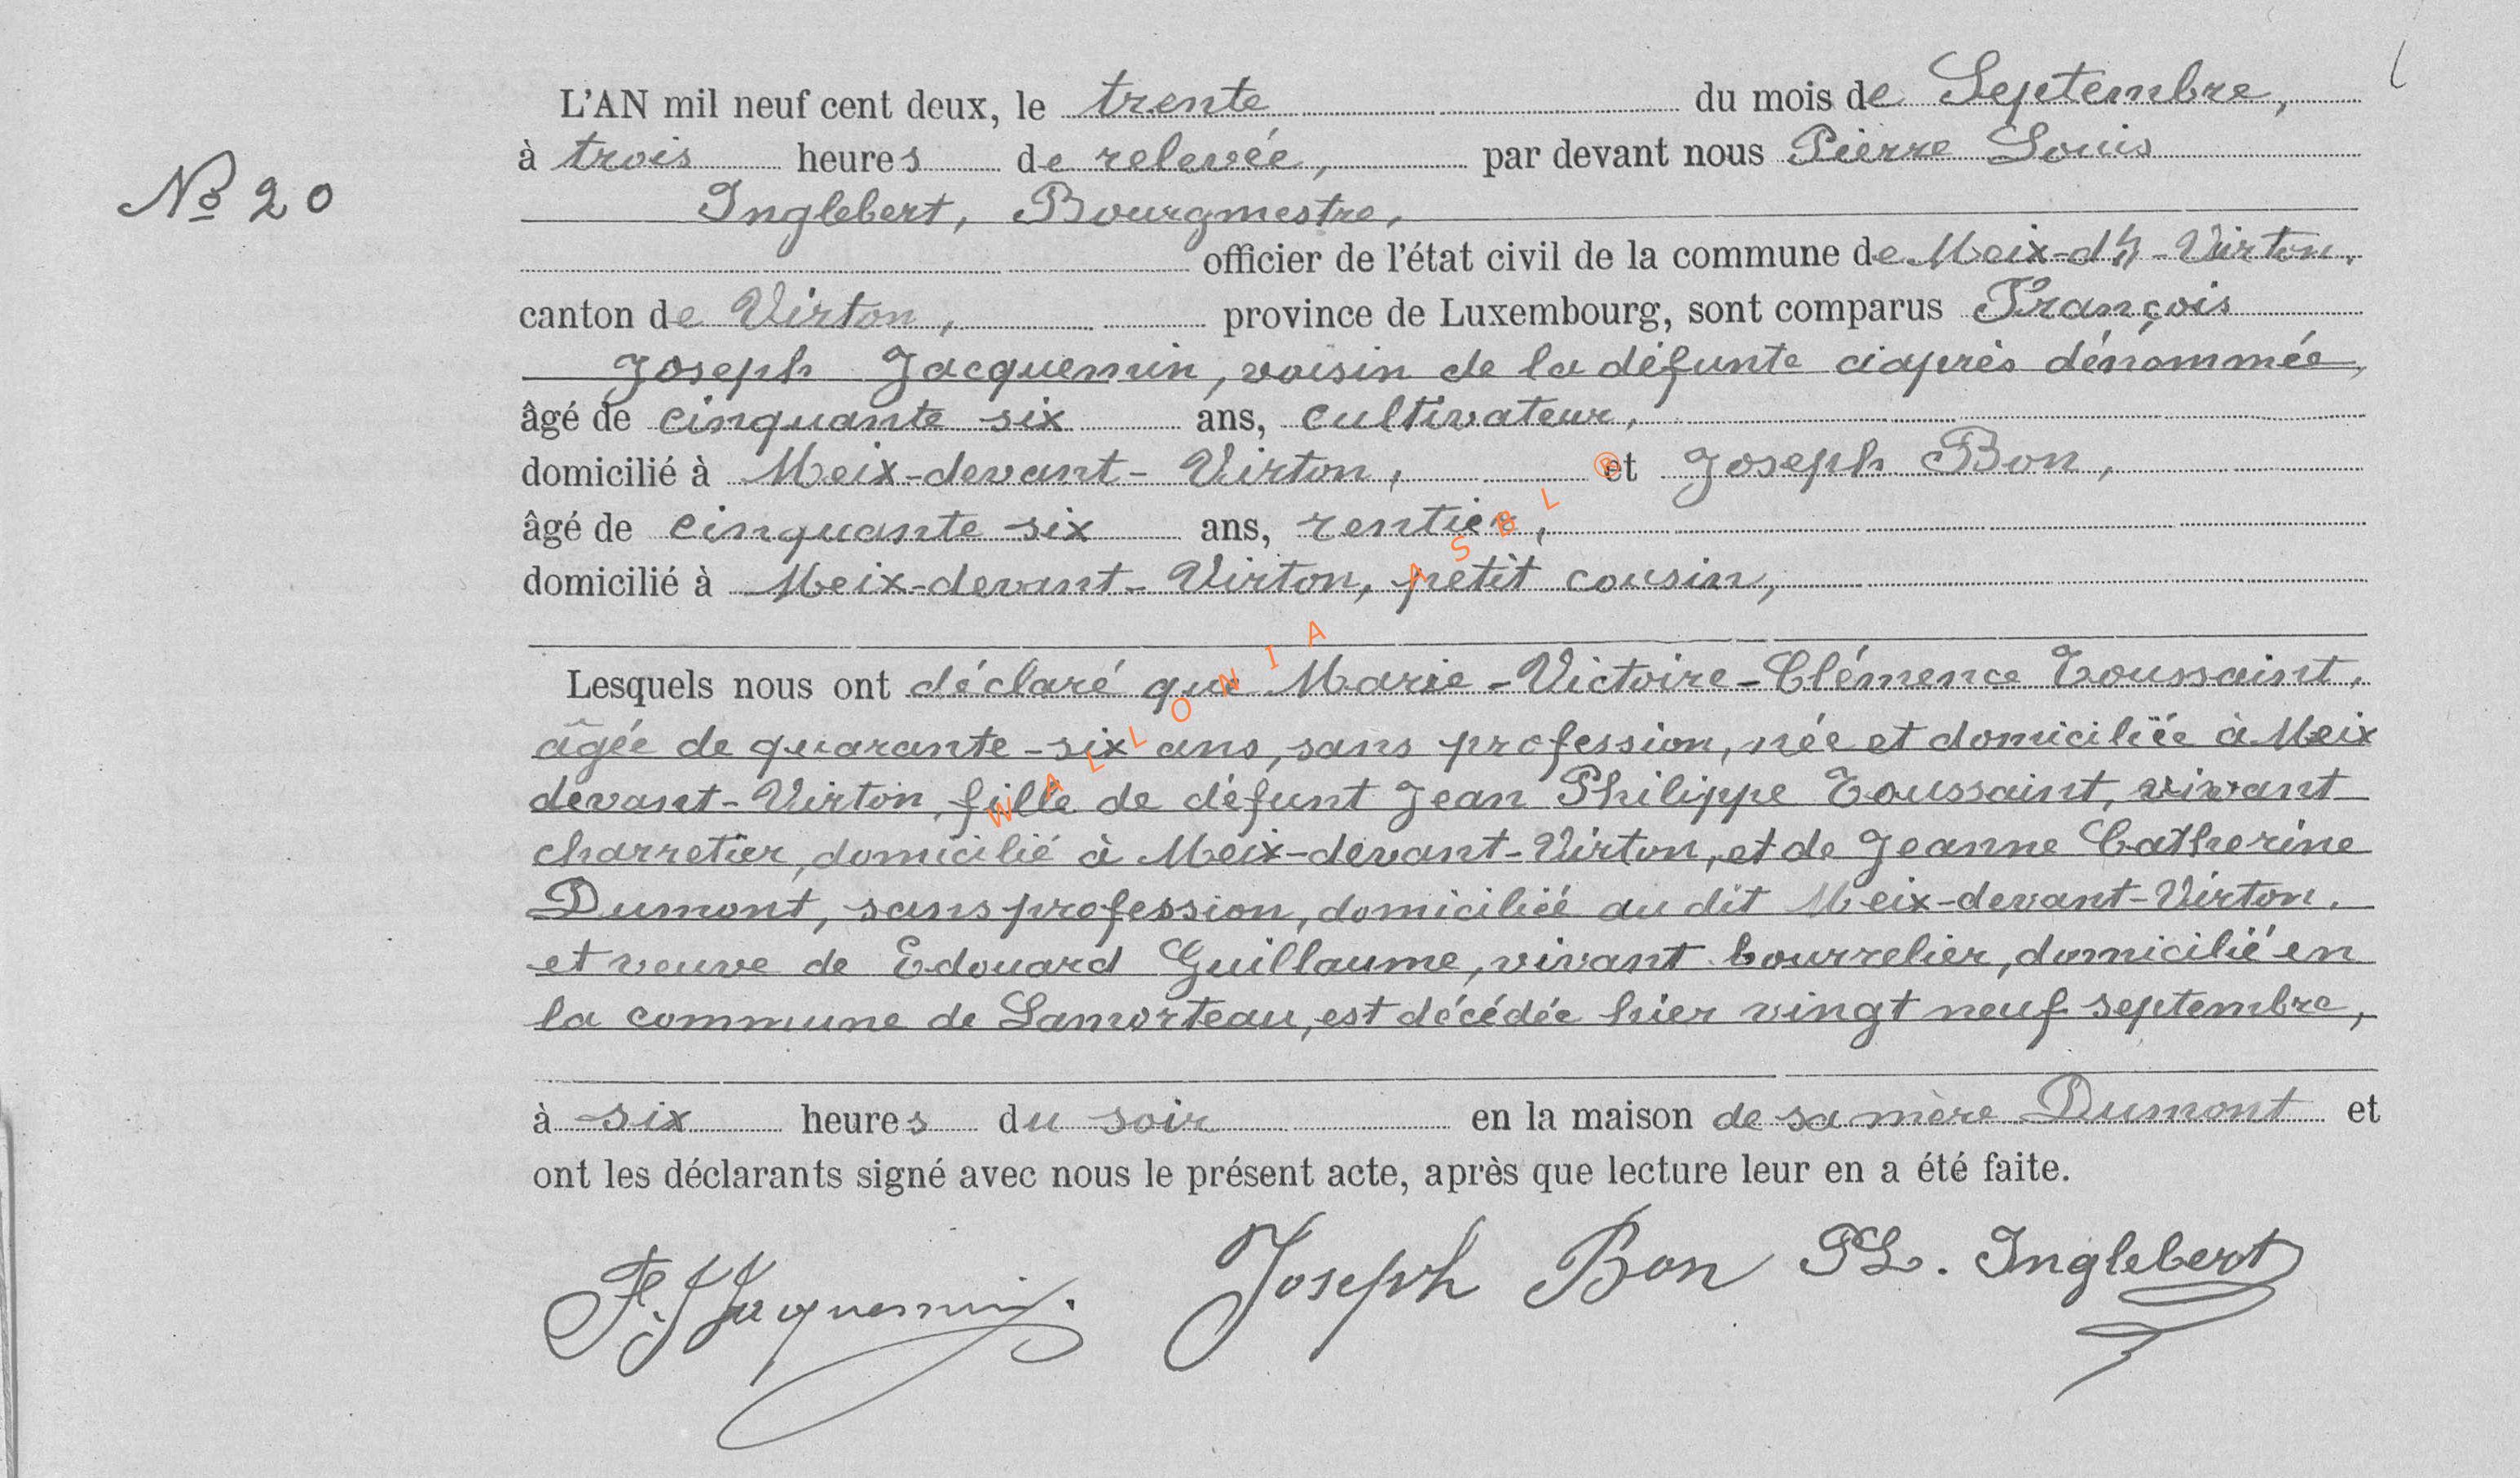 L'AN mil neuf cent deux, le trente du mois de Septembre,
à trois heures de relevée, par devant nous Pierre Louis
No 20
Inglebert, Bourgmestre,
officier de l'état civil de la commune de Meix-dt-Virton,
canton de Virton, province de Luxembourg, sont comparus François
Joseph Jacquemin, voisin de la défunte ciaprès dénommée,
âgé de cinquante six ans, cultivateur,
domicilié à Meix-devant-Virton, et Joseph Bon,
âgé de cinquante six ans, rentier,
domicilié à Meix-devant-Virton, petit cousin,
Lesquels nous ont déclaré que Marie-Victoire-Clémence Toussaint,
âgée de quarante-six ans, sans profession, née et domiciliée à Meix
devant-Virton, fille de défunt Jean Philippe Toussaint, vivant
charretier, domicilié à Meix-devant-Virton, et de Jeanne Catherine
Dumont, sans profession, domiciliée au dit Meix-devant-Virton,
et veuve de Edouard Guillaume, vivant bourrelier, domicilié en
la commune de Lamorteau, est décédée hier vingt neuf septembre,
à six heures du soir en la maison de sa mère Dumont et
ont les déclarants signé avec nous le présent acte, après que lecture leur en a été faite.
F. J Jacquemin. Joseph Bon PL. Inglebert
WALLONIA ASBL ®